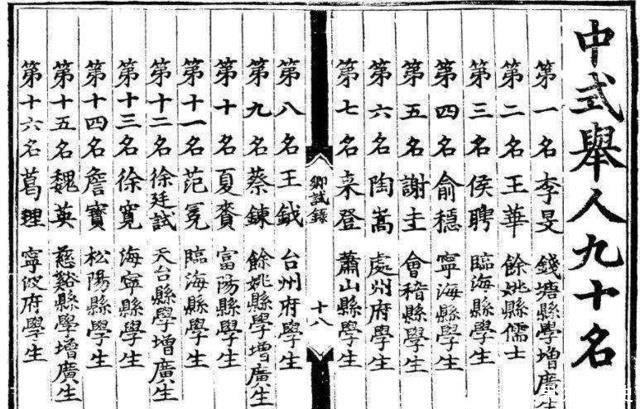 中式舉人九十名
第一名李旻 錢塘縣學增廣生
第二名王華 餘姚縣儒士
第三名侯聘 臨海縣學生
第四名俞穩 寧海縣學生
第五名謝圭 會稽縣學生
第六名陶嵩 處州府學生
第七名來登 蕭山縣學生
鄉試錄
十八
第八名王鉞 台州府學生
第九名蔡鍊 餘姚縣學增廣生
第十名夏賚 富陽縣學生
第十一名范冕 臨海縣學生
第十二名徐廷試 天台縣學增廣生
第十三名徐寬 海寧縣學生
第十四名詹寶 松陽縣學生
第十五名魏英 慈谿縣學增廣生
第十六名葛 寧波府學生